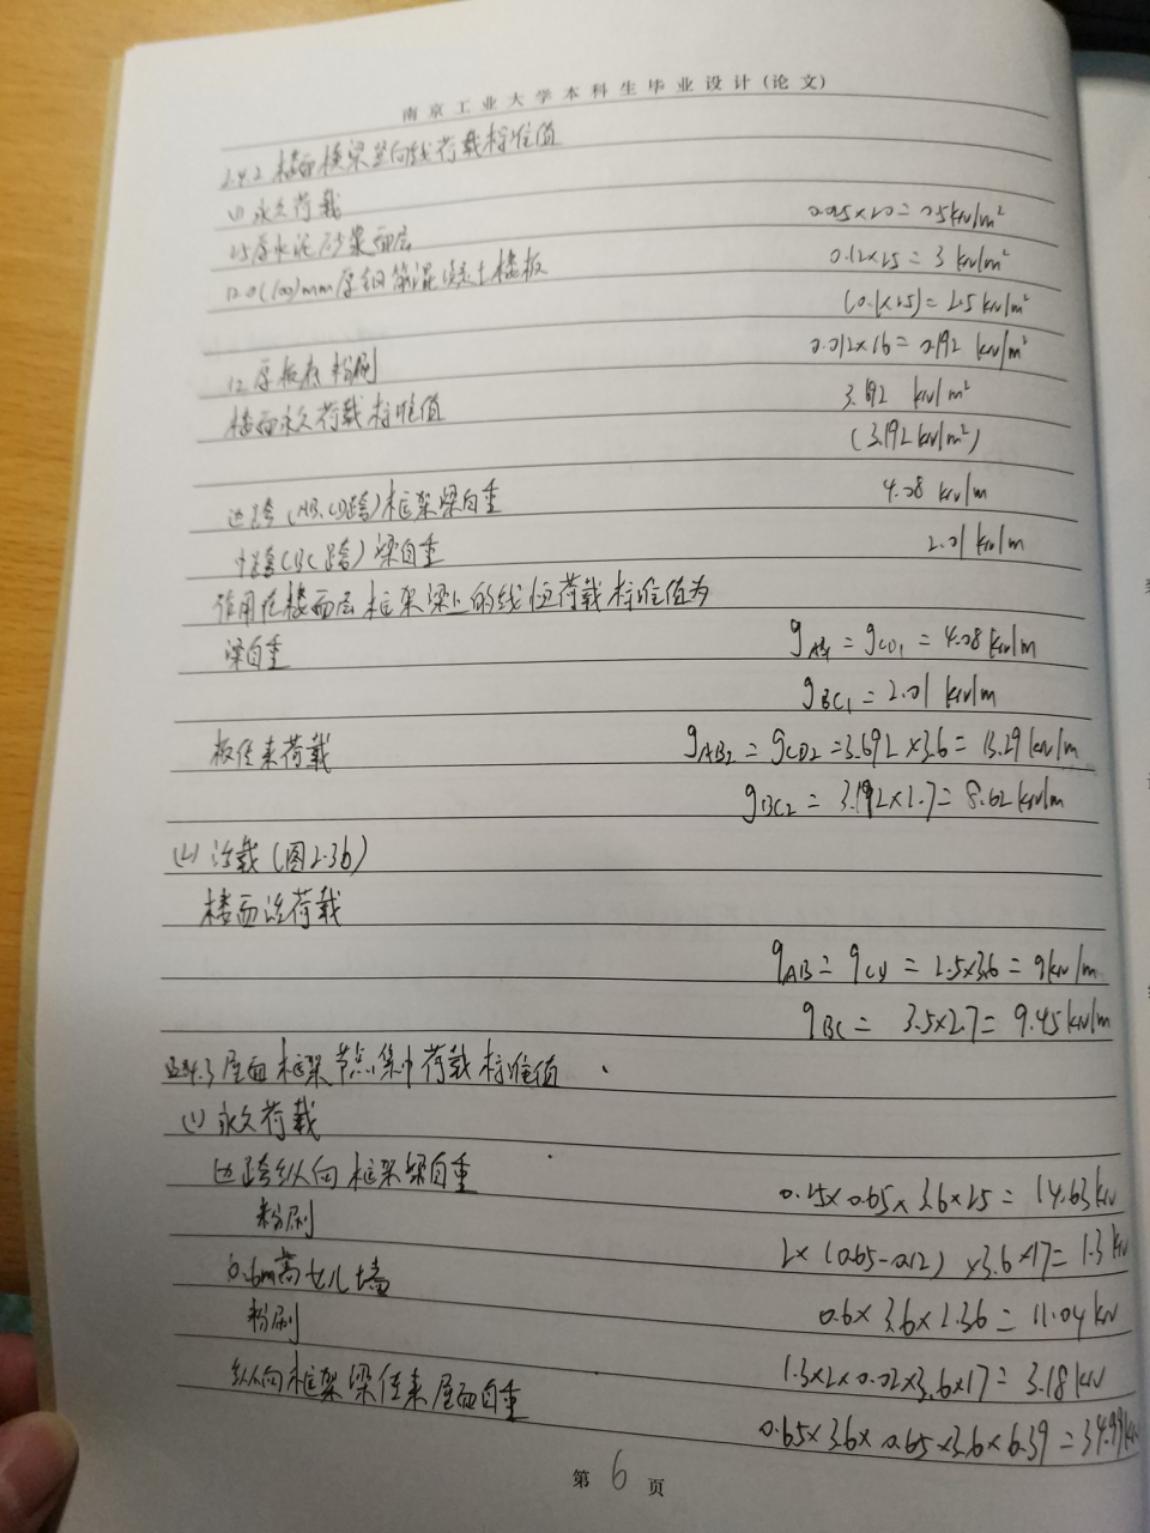 南京工业大学本科生毕业设计(论文)
2.4.2 楼面横梁竖向线荷载标准值
(1) 永久荷载
25厚水泥砂浆面层 0.025×20=0.5kN/m²
120(100)mm厚钢筋混凝土楼板 0.12×25=3 kN/m²
(0.1×25)=2.5kN/m²
12厚板底粉刷 0.012×16=0.192 kN/m²
楼面永久荷载标准值 3.692 kN/m²
(3.192kN/m²)
边跨(AB、CD跨)框架梁自重 4.08 kN/m
中跨(BC跨)梁自重 2.01 kN/m
作用在楼面层框架梁上的线恒荷载标准值为
梁自重 gAB1=gCD1=4.08kN/m
gBC1=2.01 kN/m
板传来荷载 gAB2=gCD2=3.692×3.6=13.29kN/m
gBC2=3.192×2.7=8.62kN/m
(2) 活载(图2.3b)
楼面活荷载
qAB=qCD=2.5×3.6=9kN/m
qBC=3.5×2.7=9.45kN/m
2.4.3 屋面框架节点集中荷载标准值
(1) 永久荷载
边跨纵向框架梁自重 0.25×0.65×3.6×25=14.63kN
粉刷 2×(0.65-0.12)×3.6×17=1.3kN
0.6m高女儿墙 0.6×3.6×2.36=11.04kN
粉刷 1.3×2×0.02×3.6×17=3.18kN
纵向框架梁传来屋面自重 0.65×3.6×0.65×3.6×6.39=34.99kN
第6页